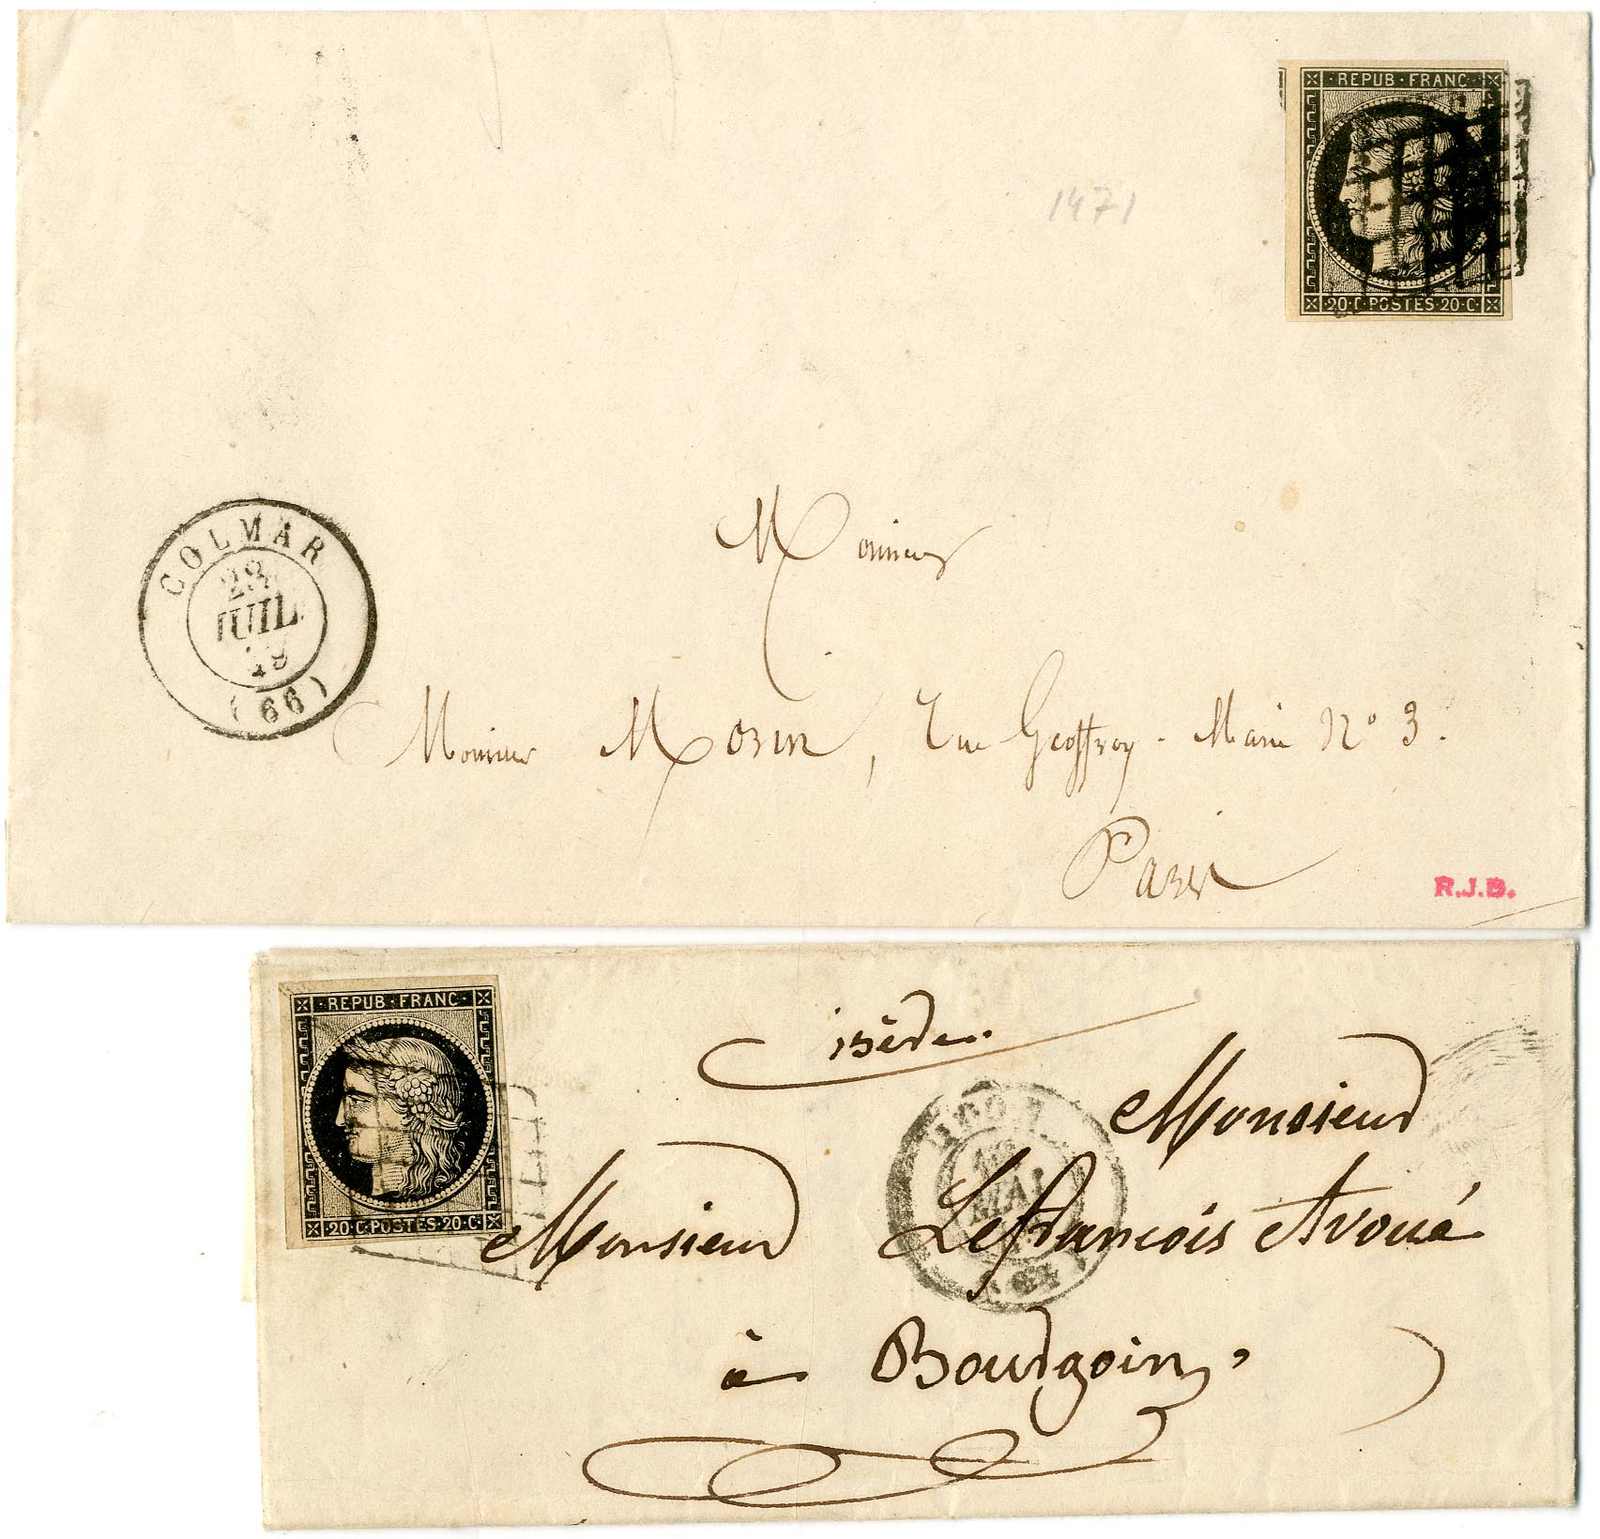 REPUB·FRANC·
20·C·POSTES·20·C·
1471
COLMAR
28
JUIL.
(66)
Monsieur
Monsieur Morin, Rue Geoffroy-Marie N° 3.
Paris
R.J.B.
REPUB·FRANC·
20·C·POSTES·20·C·
isère.
MAI
Monsieur
Monsieur Lefrancois Avoué
à Bourgoin,